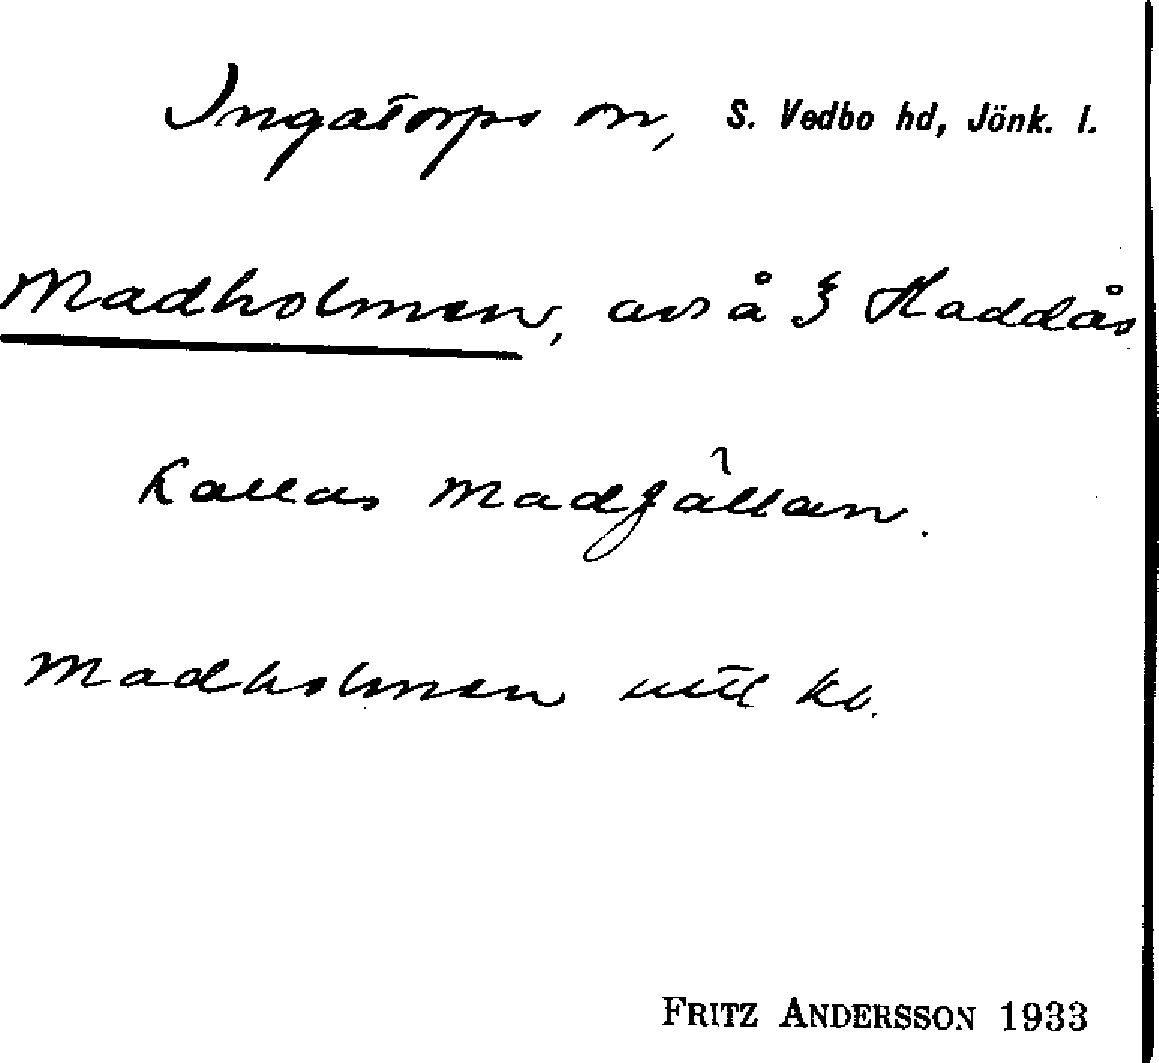 Ingatorps sn, S. Vedbo hd, Jönk. l.
Madholmen, avs å Haddås
Kallas
Madholmen
FRITZ ANDERSSON 1933